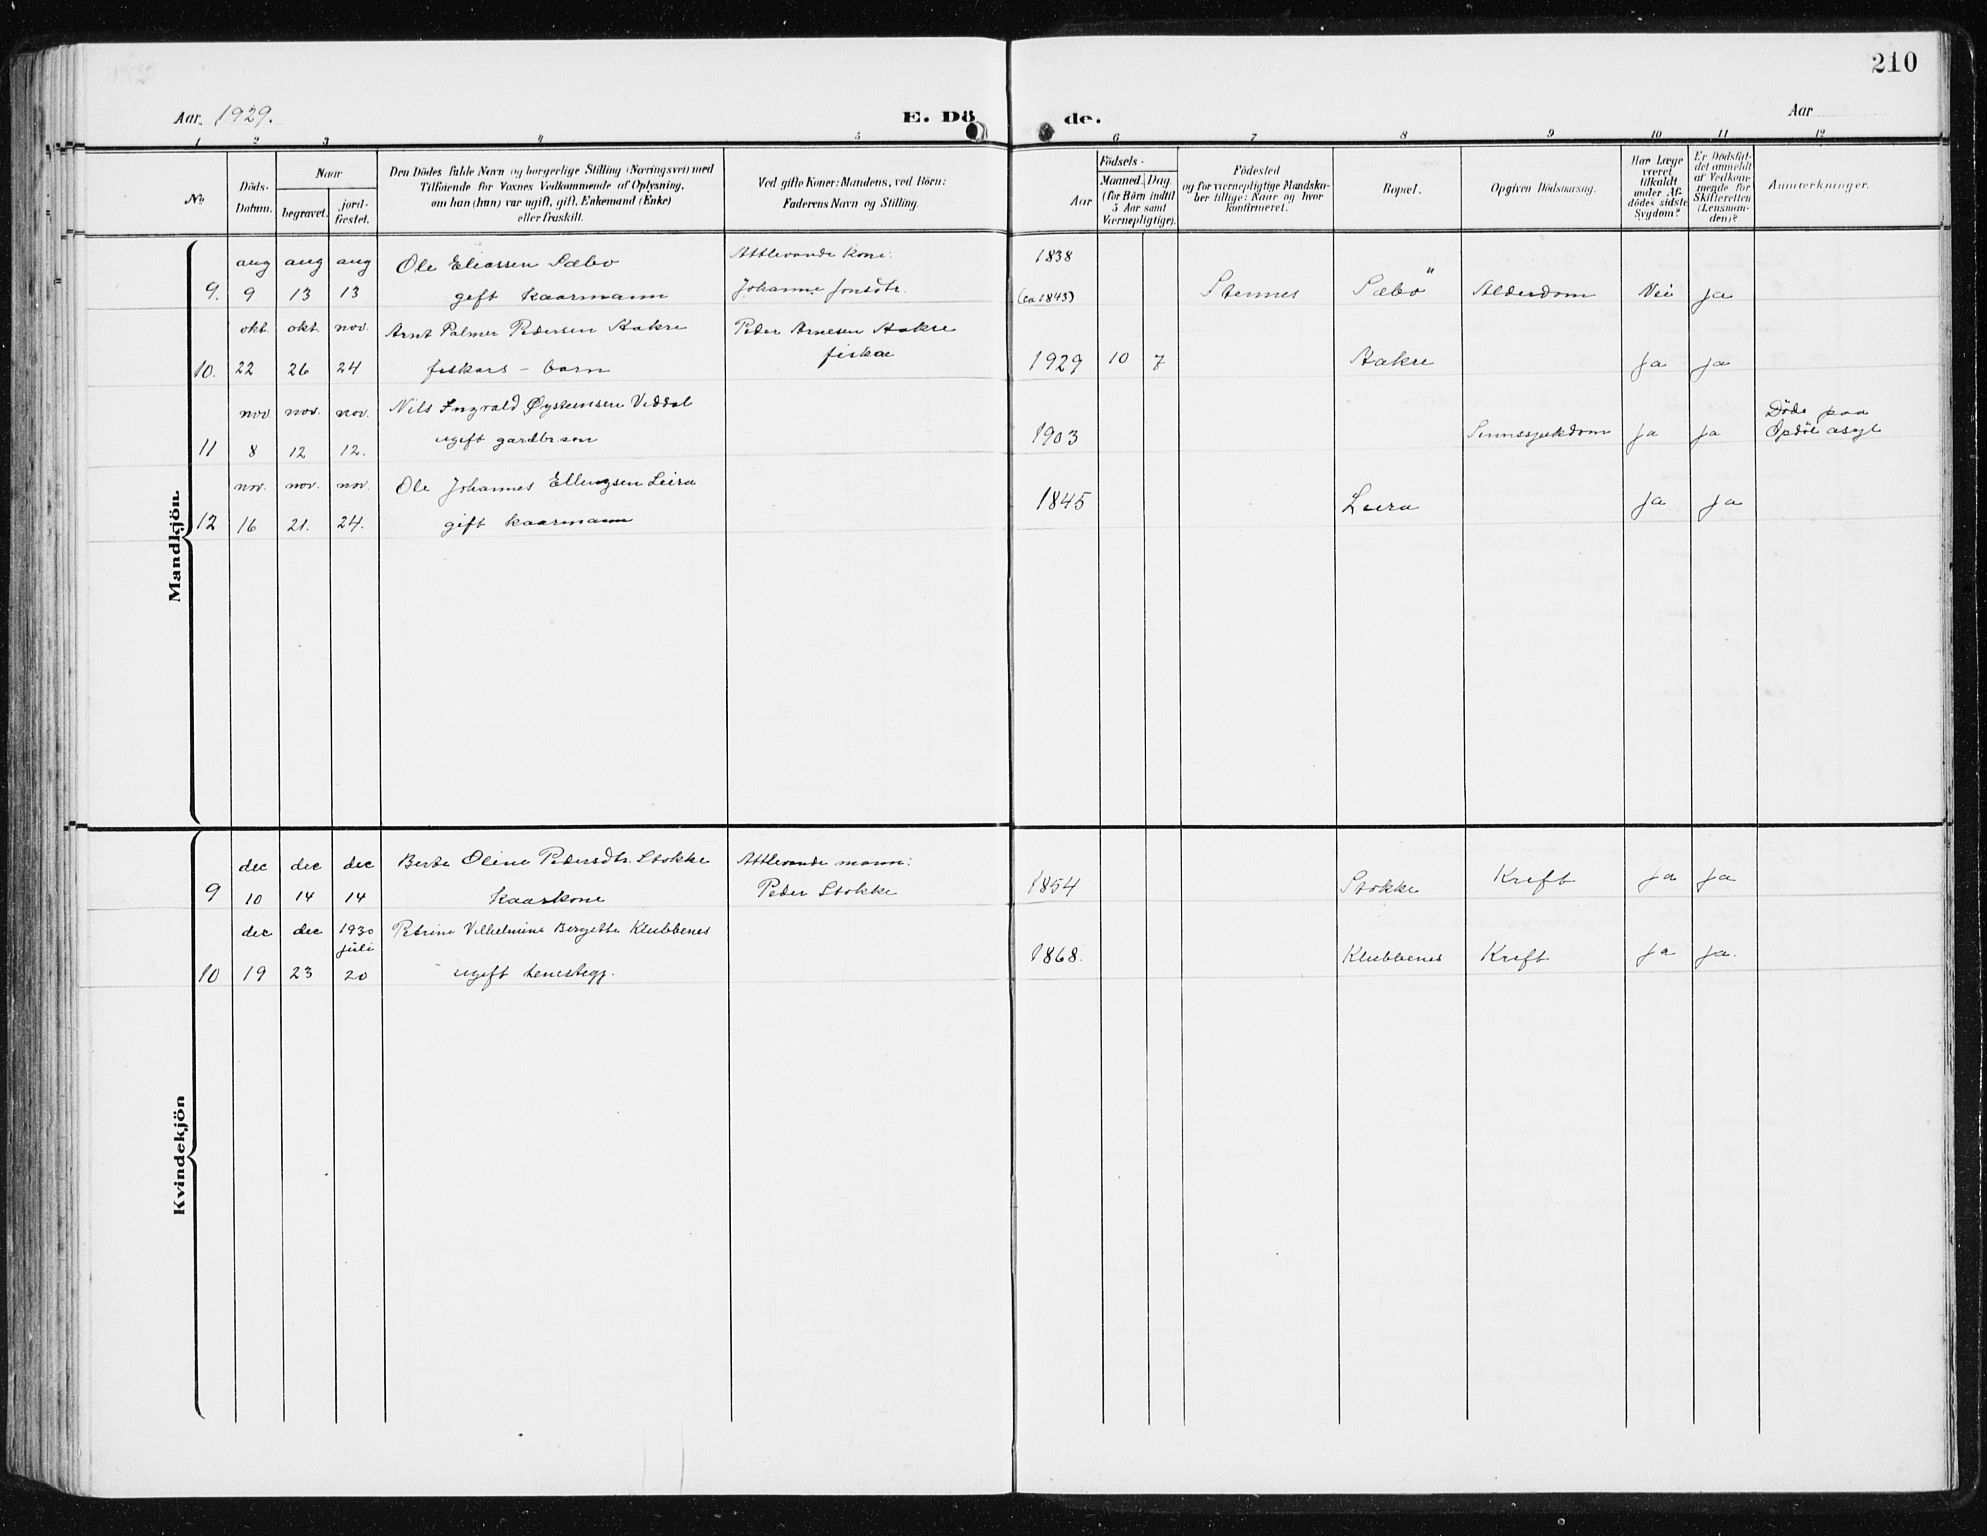 210
Aar. 1929.
E. Dö
de.
Aar
1 2 3 4 5 6 7 8 9 10 11 12
No
Döds-
Datum.
Naar
begravet.
jord-
fæstet.
Den Dödes fulde Navn og borgerlige Stilling (Næringsvei) med
Tilföiende for Voxnes Vedkommende af Oplysning,
om han (hun) var ugift, gift, Enkemand (Enke)
eller fraskilt.
Ved gifte Koner: Mandens, ved Börn:
Faderens Navn og Stilling.
Födsels-
Aar
Maaned. Dag
(for Börn indtil
5 Aar samt
Værnepligtige).
Födested
og for værnepligtige Mandska-
ber tillige: Naar og hvor
konfirmeret.
Bopæl.
Opgiven Dödsaarsag.
Har Læge
været
tilkaldt
under Af-
dödes sidste
Sygdom?
Er Dödsfal-
det anmeldt
af Vedkom-
mende for
Skifteretten
(Lensman-
den)?
Anmærkninger.
Mandkjön.
aug aug aug Ole Eliassen Sæbø Attlevande kone: 1838
9. 9 13 13 gift kaarmann Johanne Jonsdtr. (ca 1843) Stennes Sæbø Alderdom Nei ja
okt. okt. nov. Arnt Palmer Pedersen Aakre Peder Arnesen Aakre
fiskar
10. 22 26 24 fiskars - barn 1929 10 7 Aakre ja ja
nov nov. nov. Nils Ingvald Øysteinsen Viddal Døde paa
11 8 12 12. ugift gardbr.son 1903 Sinnssjukdom ja ja Opdøl asyl
nov. nov. nov. Ole Johannes Ellingsen Leira
12 16 21. 24. gift kaarmann 1845 Leira ja ja
Kvindekjön
dec dec dec Berte Oline Pedersdtr. Stokke Attlevande mann:
9 10 14 14 kaarkone Peder Stokke 1854 Stokke Kreft ja ja
dec dec 1930 Petrine Vilhelmine Bergitte Klubbenes
juli
10 19 23 20 ugift 1868. Klubbenes Kreft ja ja.